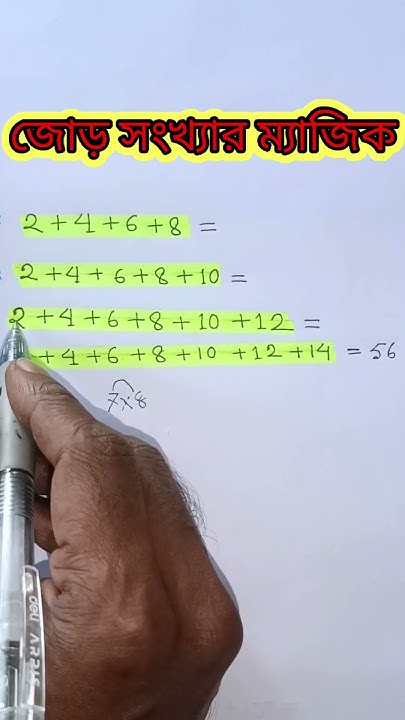 জোড় সংখ্যার ম্যাজিক
2+4+6+8 =
2+4+6+8+10 =
2+4+6+8+10+12 =
+4+6+8+10+12+14 = 56
7x8